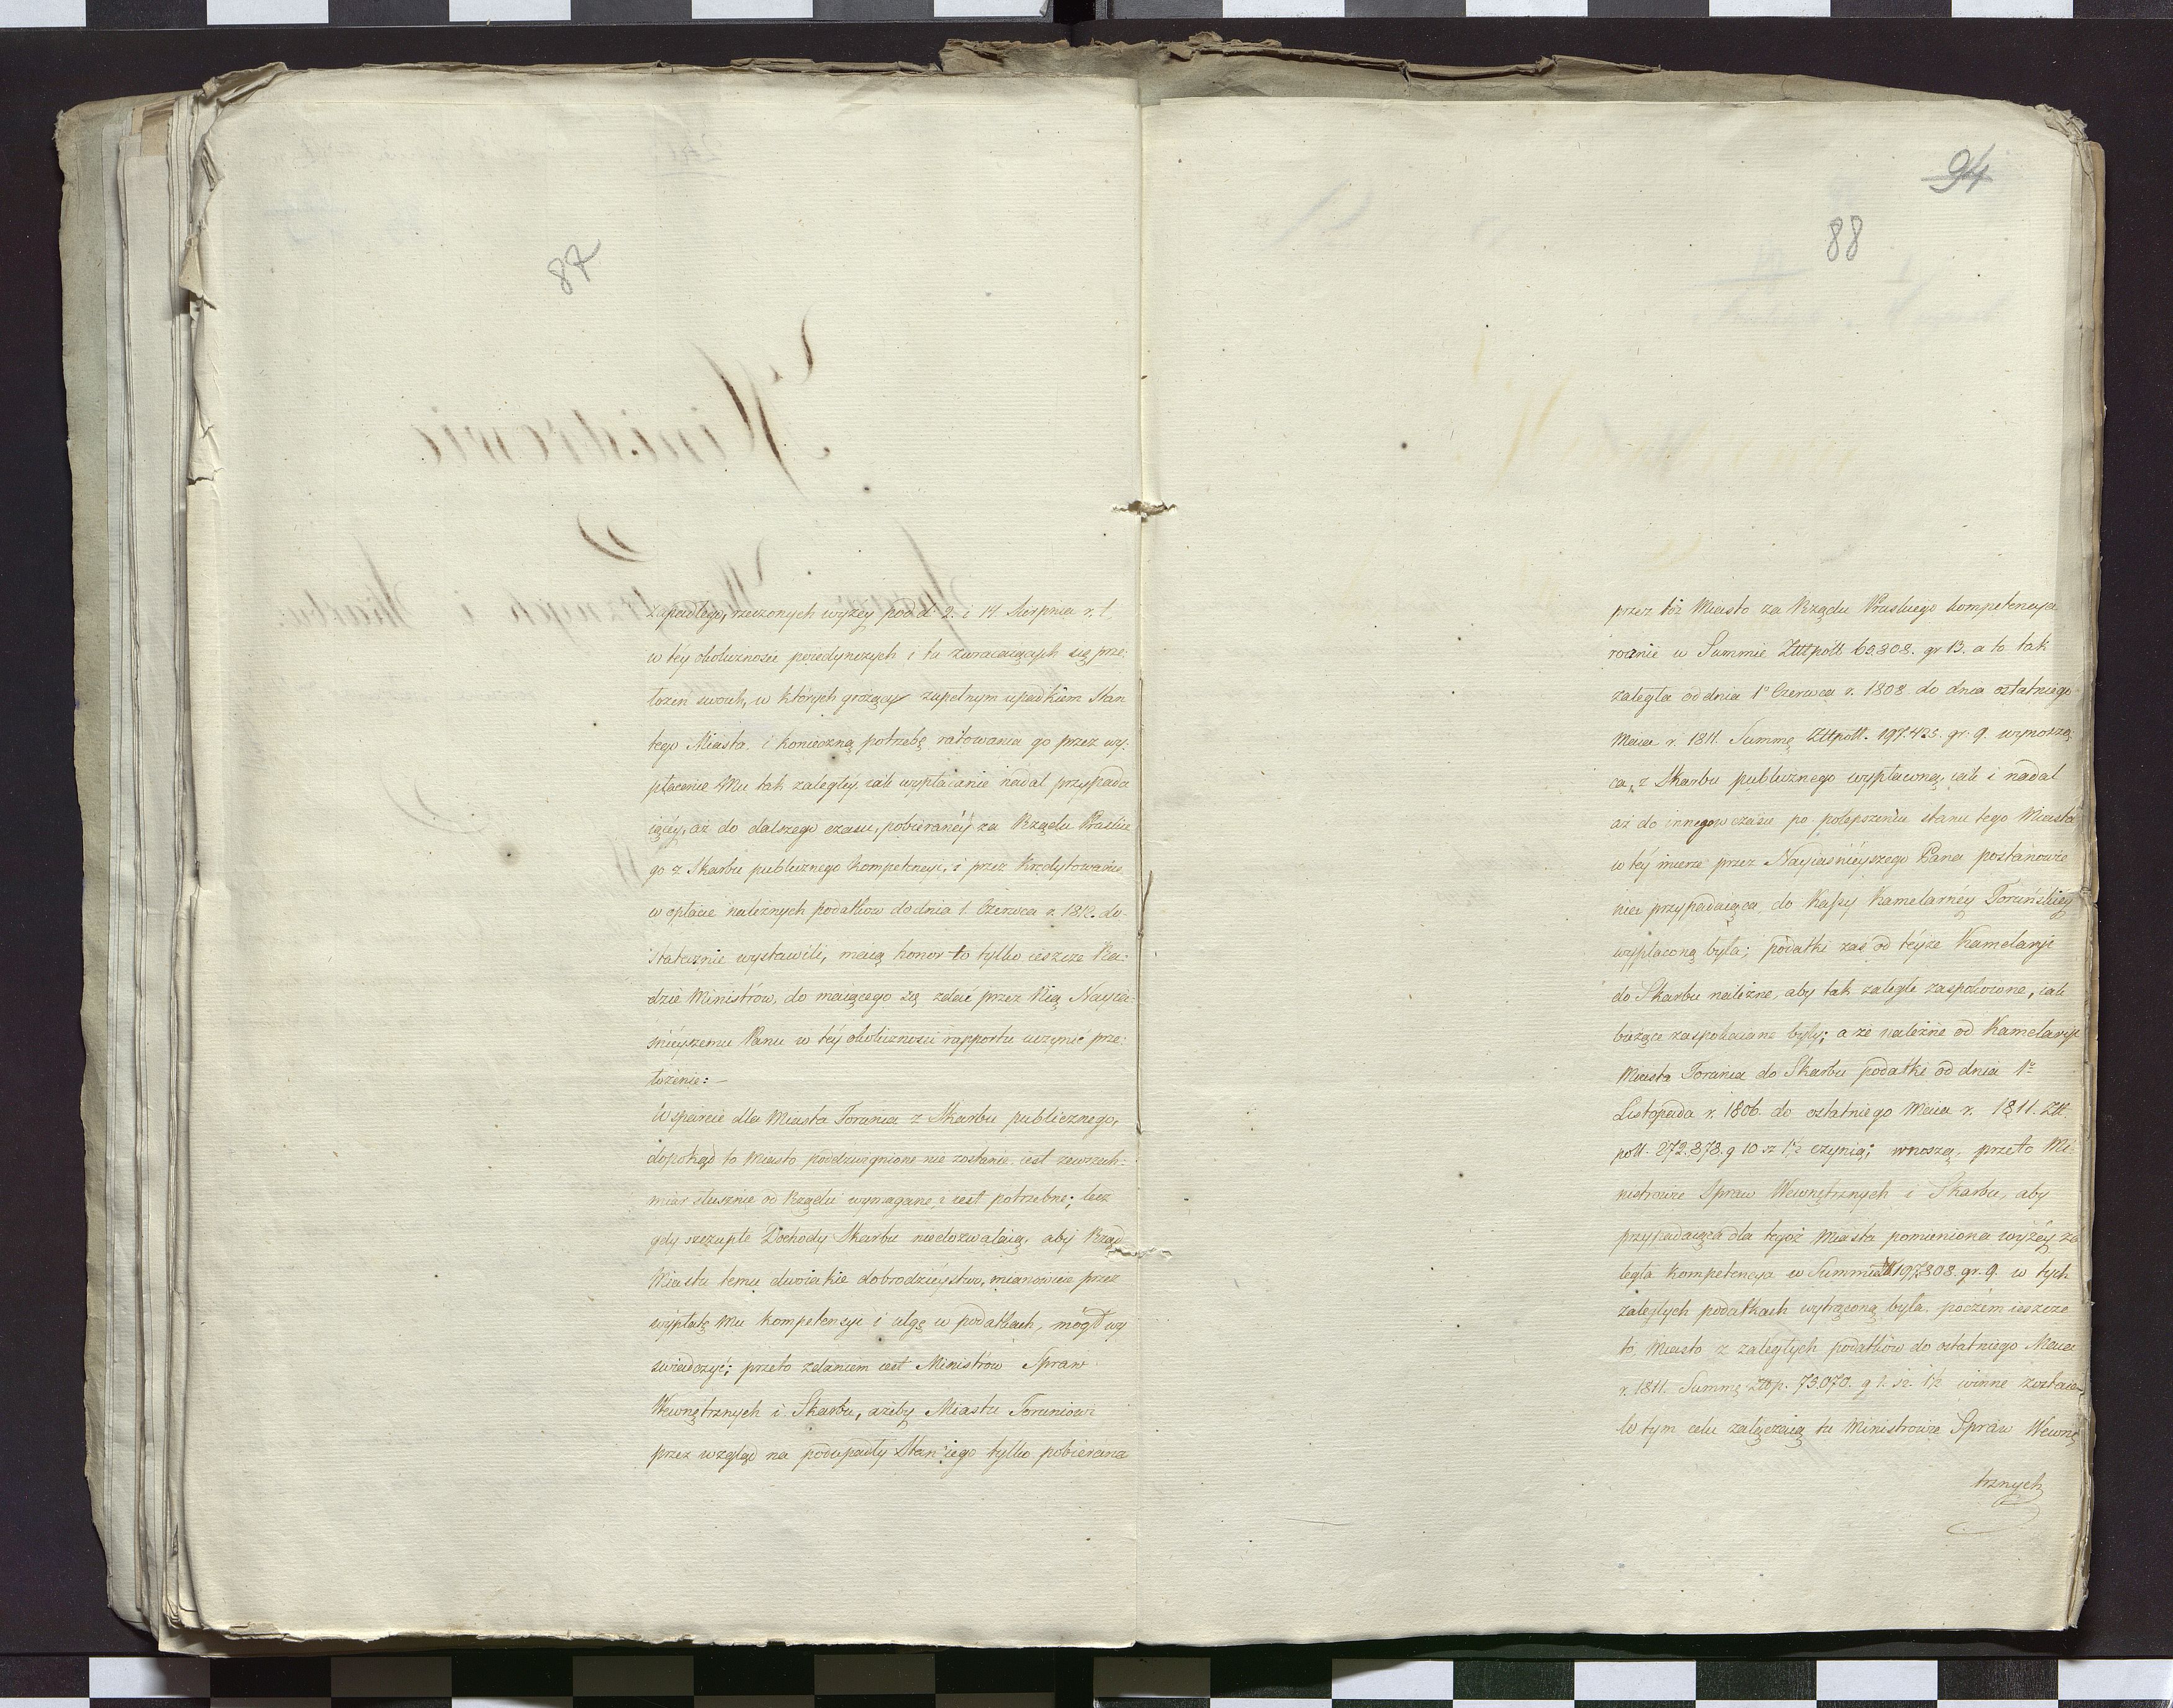 87
zapadłego, rzeczonych wyżey pod d. 2. i 14 Sierpnia r. t.
w téy okoliczności poiedynczych i tu zwracaiących się prze:
łożeń swoich, w których grożący zupełnym upadkiem Stan
tego Miasta i konieczną potrzebę ratowania go przez wy:
płacenie Mu tak zaległéy, iak wypłacanie nadal przypada
iącéy, aż do dalszego czasu, pobieranéy za Rządu Pruskie
go z Skarbu publicznego kompetencyi, i przez kredytowanie
w opłacie należnych podatków do dnia 1. Czerwca r. 1812. do
statecznie wystawili, maią honor to tylko ieszcze Ra:
dzie Ministrów, do maiącego się zdać przez Nią Nayia:
śnieyszemu Panu w téy okoliczności rapportu uczynić prze:
łożenie: –
Wsparcie dla Miasta Torunia z Skarbu publicznego,
dopokąd to Miasto poddzwignione nie zostanie iest zewszech:
miar słusznie od Rządu wymagane, i iest potrzebne; lecz
gdy szczupłe Dochody Skarbu niedozwalaią, aby Rząd
Miastu temu dwoiakie dobrodzieystwo, mianowicie przez
wypłatę Mu kompetencyi i ulgę w podatkach, mógł wy
świadczyć; przeto zdaniem iest Ministrów Spraw
Wewnętrznych i Skarbu, ażeby Miastu Toruniowi
przez wzgląd na podupadły Stan iego tylko pobierana
94
88
przez toż Miasto za Rządu Pruskiego kompetencya
rocznie w Summie Złttpoll 65.808. gr 13. a to tak
zaległa od dnia 1º Czerwca r. 1808 do dnia ostatniego
Maia r. 1811. Summę Złtpoll. 197.425. gr. 9. wynoszą
ca, z Skarbu publicznego wypłacona, iak i nadal
aż do innego w czasie po polepszeniu stanu tego Miasta
w téy mierze przez Nayiaśnieyszego Pana postanowie
nia przypadaiąca do Kassy Kamelarnéy Toruńskiey
wypłaconą była; podatki zaś od teyże Kamelaryi
do Skarbu należne, aby tak zaległe zaspokoione, iak
bieżące zaspokaiane były; a że należne od Kamelaryi
Miasta Torunia do Skarbu podatki od dnia 1º
Listopada r. 1806. do ostatniego Maia r. 1811. Złt
poll. 272.878. g 10 sz 1½ czynią; wnoszą, przeto Mi
nistrowie Spraw Wewnętrznych i Skarbu, aby
przypadaiąca dla tegoż Miasta pomieniona wyżéy za
legła kompetencya w Summie 197.808. gr. 9. w tych
zaległych podatkach wytrąconą była, poczém ieszcze
to Miasto z zaległych podatków do ostatniego Maia
r. 1811. Summę złtp. 75.070. g 1. sz. 1½ winne zostaie.
W tym celu załączaią tu Ministrowie Spraw Wewnę
trznych